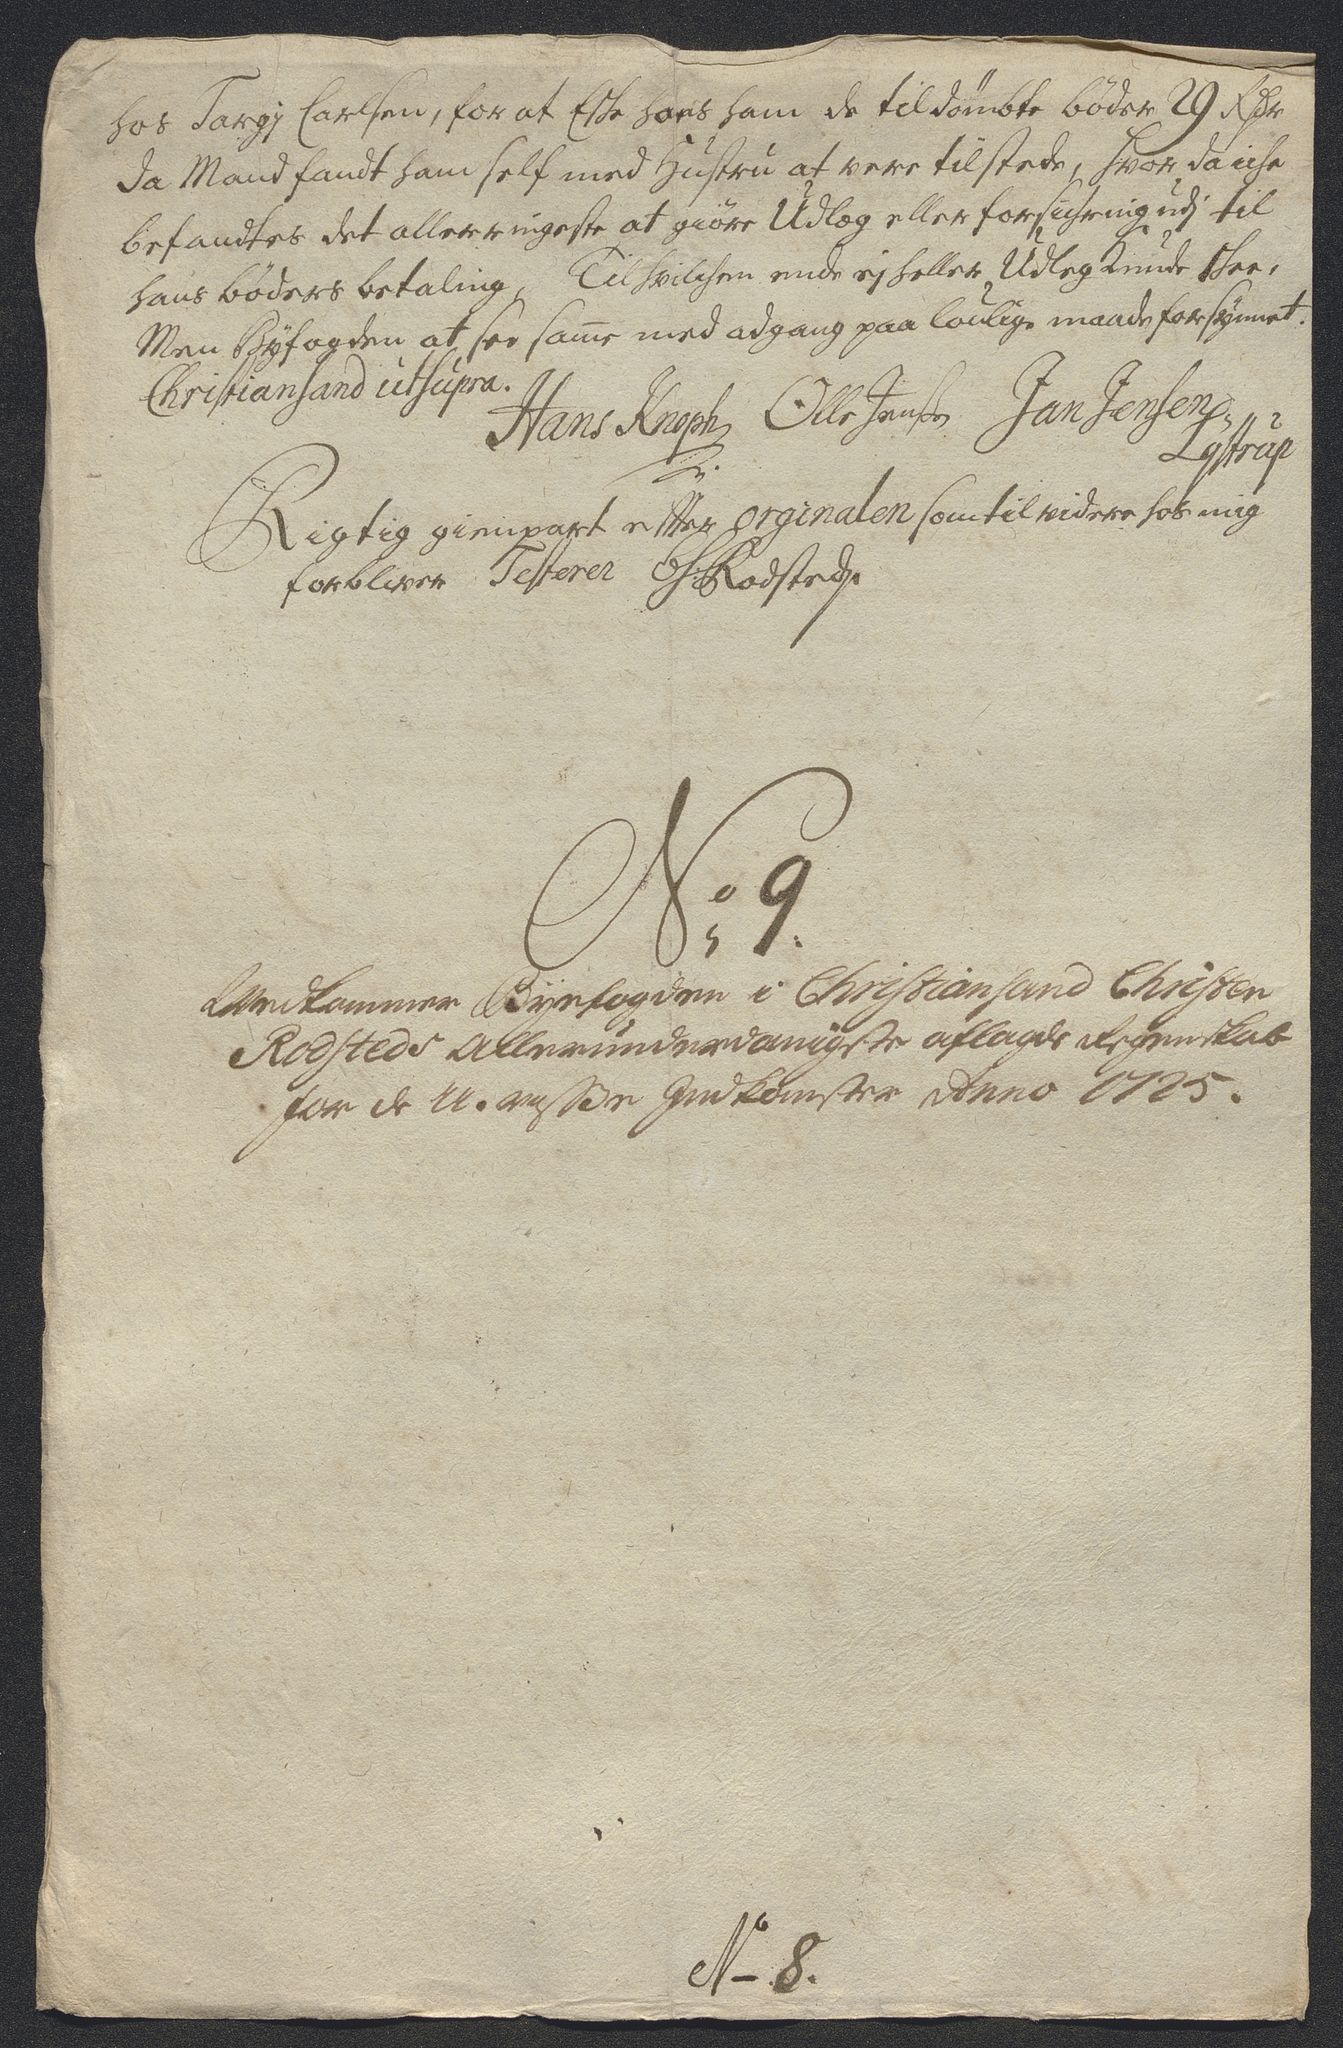 hos Targj Carlsen, for at Esche hoes ham de tildømbte bøder 29 Rdr
da Mand fandt ham self med Hustru at vere tilstede, hvor da iche
befandtes det allerringeste at giøre Udlæg eller forsichring udj til
hans bøders betaling, Til hvilchen ende ej heller Udleg kunde skee,
Men Byfogden at see samme med adgang paa loulige maade forsynnet.
Christiansand utsupra.
Hans Knoph Olle Jensen Jan Jensen
Lystrup
Rigtig gienpart effter orginalen som til videre hos mig
forbliver Testerer C: Rodsted
No 9.
Vedkommer Byefogden i Christiansand Christen
Rodsteds allerunderdanigste aflagde Regenskab
for de U. visse Indkomster Anno 1725.
No 8.